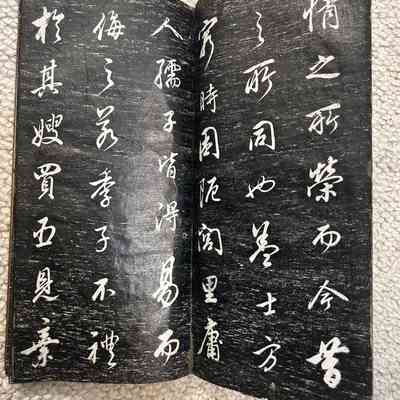 情之所榮而今昔
之所同也蓋士方
窮時困阨閭里庸
人孺子皆得易而
侮之若季子不禮
於其嫂買臣見棄